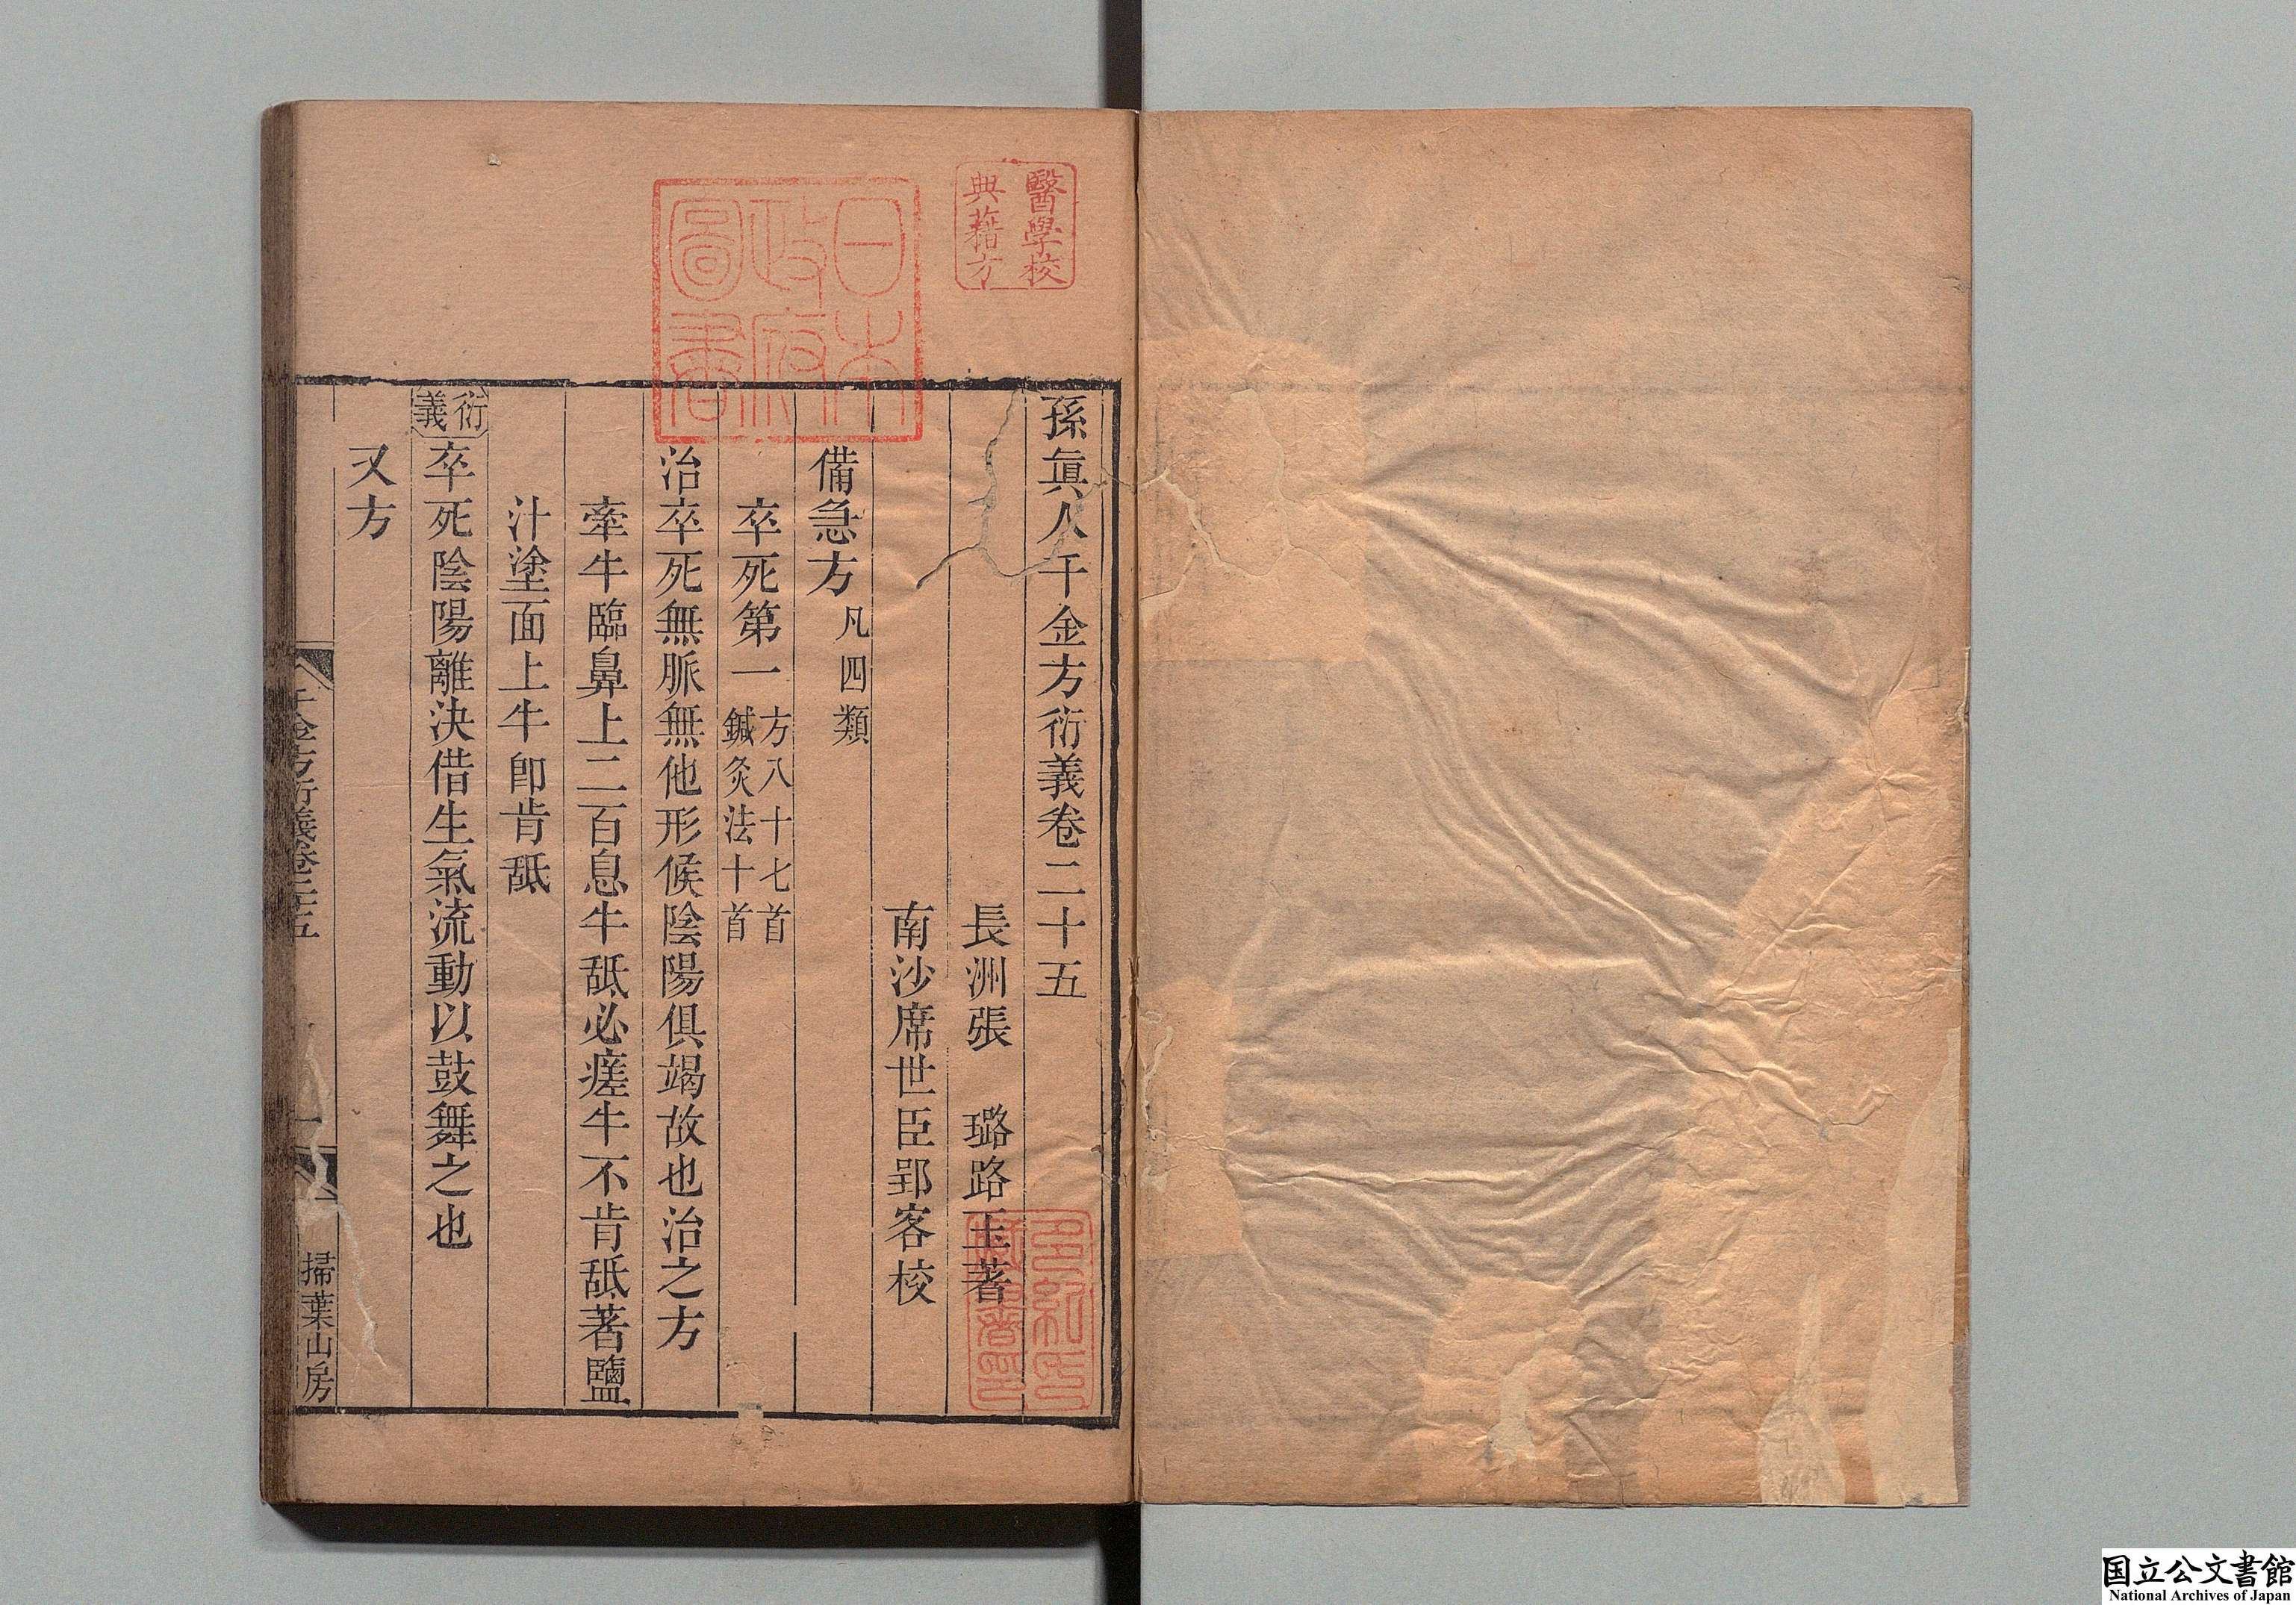 孫眞人千金方衍義卷二十五
長洲張　璐路玉著
南沙席世臣郢客校
備急方凡四類
卒死第一方八十七首
鍼灸法十首
治卒死無脈無他形候陰陽俱竭故也治之方
牽牛臨鼻上二百息牛舐必瘥牛不肯舐著鹽
汁塗面上牛卽肯舐
衍義卒死陰陽離決借生氣流動以鼓舞之也
又方
千金方衍義卷二十五
一
掃葉山房
醫學校
典藉方
日本
政府
圖書
多紀氏
藏書印
国立公文書館
National Archives of Japan